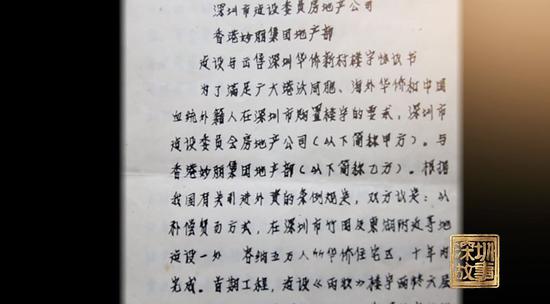 深圳市建设委员房地产公司
香港妙丽集团地产部
建设与出售深圳华侨新村楼宇协议书
为了满足广大港汰同胞、海外华侨和中国
血统外籍人在深圳市购置楼宇的要求,深圳市
建设委员会房地产公司(以下简称甲方)。与
香港妙丽集团地产部(以下简称乙方)。根据
我国有关引进外资的条例 ,双方议定:以
补偿贸易方式,在深圳市竹园及 湖附近等地
建设一处 容纳五万人的华侨住宅区,十年内
完成。首期工程,建设《 》楼宇 六层
深圳
故事